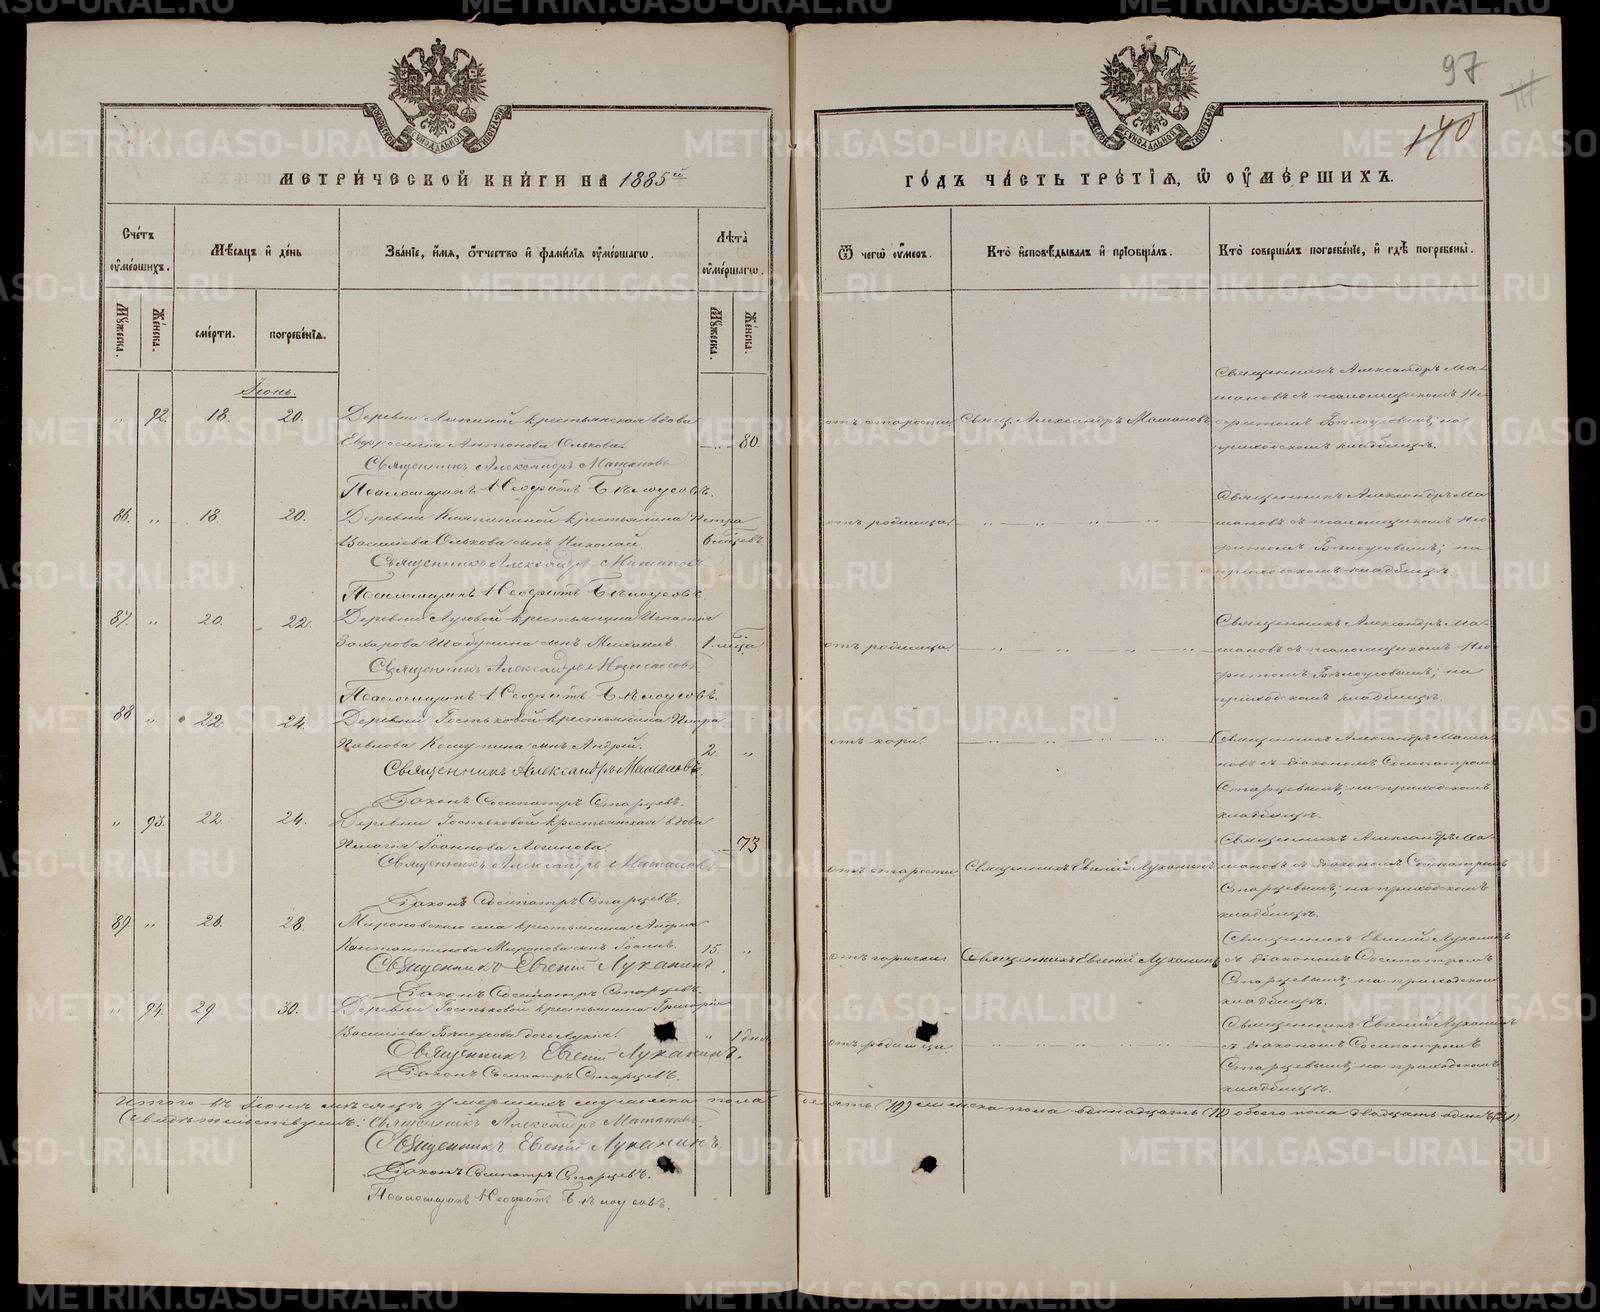 97
140
МЕТРИЧЕСКОЙ КНИГИ НА 1885й
ГОДЪ ЧАСТЬ ТРЕТІЯ, Ѡ ОУМЕРШИХЪ.
Счетъ оумершихъ.
Мѣсяцъ и день
Званіе, имя, отчество и фамилія оумершагѡ.
Лѣта оумершагѡ.
Ѿ чегѡ оумеръ.
Кто исповѣдывалъ и пріобщалъ.
Кто совершалъ погребеніе, и гдѣ погребены.
Мужеска.
Женска.
смерти.
погребенія.
Мужеска.
Женска.
Іюнь.
" 92. 18. 20. Деревни Липиной крестьянская вдова
Евфросинія Антонова Олькова. 80.
Священникъ Александръ Матановъ
Псаломщикъ Неофитъ Бѣлоусовъ.
отъ старости Свящ. Александръ Матановъ
Священникъ Александръ Ма-
тановъ съ псаломщикомъ Не-
офитомъ Бѣлоусовымъ; на
приходскомъ кладбищѣ.
86. " 18. 20. Деревни крестьянина Петра
Василіева Олькова сынъ Николай. 6 мѣсцевъ
Священникъ Александръ Матановъ
Псаломщикъ Неофитъ Бѣлоусовъ.
отъ родимца.
Священникъ Александръ Ма-
тановъ съ псаломщикомъ Нео-
фитомъ Бѣлоусовымъ; на
приходскомъ кладбищѣ.
87. " 20. 22. Деревни Луговой крестьянина Игнатія
Захарова Шабунина сынъ Михаилъ. 1 мѣсца.
Священникъ Александръ Матановъ
Псаломщикъ Неофитъ Бѣлоусовъ.
отъ родимца.
Священникъ Александръ Ма-
тановъ съ псаломщикомъ Нео-
фитомъ Бѣлоусовымъ; на
приходскомъ кладбищѣ.
88 " 22. 24. Деревни Гостьковой крестьянина Петра
Павлова сынъ Андрей. 2. "
Священникъ Александръ Матановъ.
Діаконъ Сосипатръ Старцевъ.
отъ кори.
Священникъ Александръ Мата-
новъ съ діакономъ Сосипатромъ
Старцевымъ; на приходскомъ
кладбищѣ.
" 93. 22 24. Деревни Гостьковой крестьянская вдова
Пелагія Іоаннова Логинова. 73
Священникъ Александръ Матановъ.
Діаконъ Сосипатръ Старцевъ.
отъ старости Священникъ Евгеній Луканинъ
Священникъ Александръ Ма-
тановъ съ діакономъ Сосипатромъ
Старцевымъ; на приходскомъ
кладбищѣ.
89. " 26. 28. Мироновскаго села крестьянина Андрея
Константинова Миронова сынъ Іоаннъ. 15. "
Священникъ Евгеній Луканинъ.
Діаконъ Сосипатръ Старцевъ.
отъ горячки Священникъ Евгеній Луканинъ
Священникъ Евгеній Луканинъ
съ діакономъ Сосипатромъ
Старцевымъ; на приходскомъ
кладбищѣ.
" 94. 29 30. Деревни Гостьковой крестьянина Григорія
Василіева Бѣлоусова дочь 1 дня
Священникъ Евгеній Луканинъ.
Діаконъ Сосипатръ Старцевъ.
отъ родимца.
Священникъ Евгеній Луканинъ
съ діакономъ Сосипатромъ
Старцевымъ; на приходскомъ
кладбищѣ.
Итого въ Іюнѣ мѣсяцѣ умершихъ мужеска пола десять (10) женска пола одинадцать (11) обоего пола двадцать одинъ (21)
Свидѣтельствуемъ: Священникъ Александръ Матановъ.
Священникъ Евгеній Луканинъ.
Діаконъ Сосипатръ Старцевъ.
Псаломщикъ Неофитъ Бѣлоусовъ.
METRIKI.GASO-URAL.RU